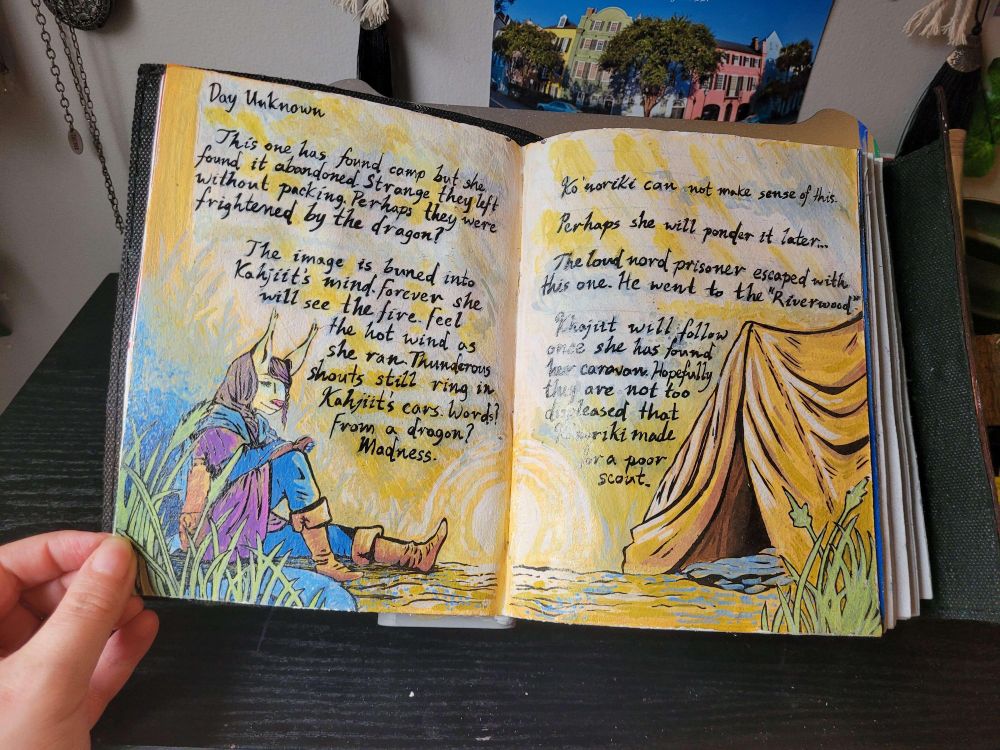 Day Unknown
This one has found camp but she
found it abandoned. Strange they left
without packing. Perhaps they were
frightened by the dragon?
The image is buned into
Kahjiit's mind. forever she
will see the fire. feel
the hot wind as
she ran. Thunderous
shouts still ring in
Kahjiit's ears. Words?
From a dragon?
Madness.
Ko'noriki can not make sense of this.
Perhaps she will ponder it later...
The loud nord prisoner escaped with
this one. He went to the "Riverwood"
Khajiit will follow
once she has found
her caravan. Hopefully
they are not too
displeased that
Ko'noriki made
for a poor
scout.